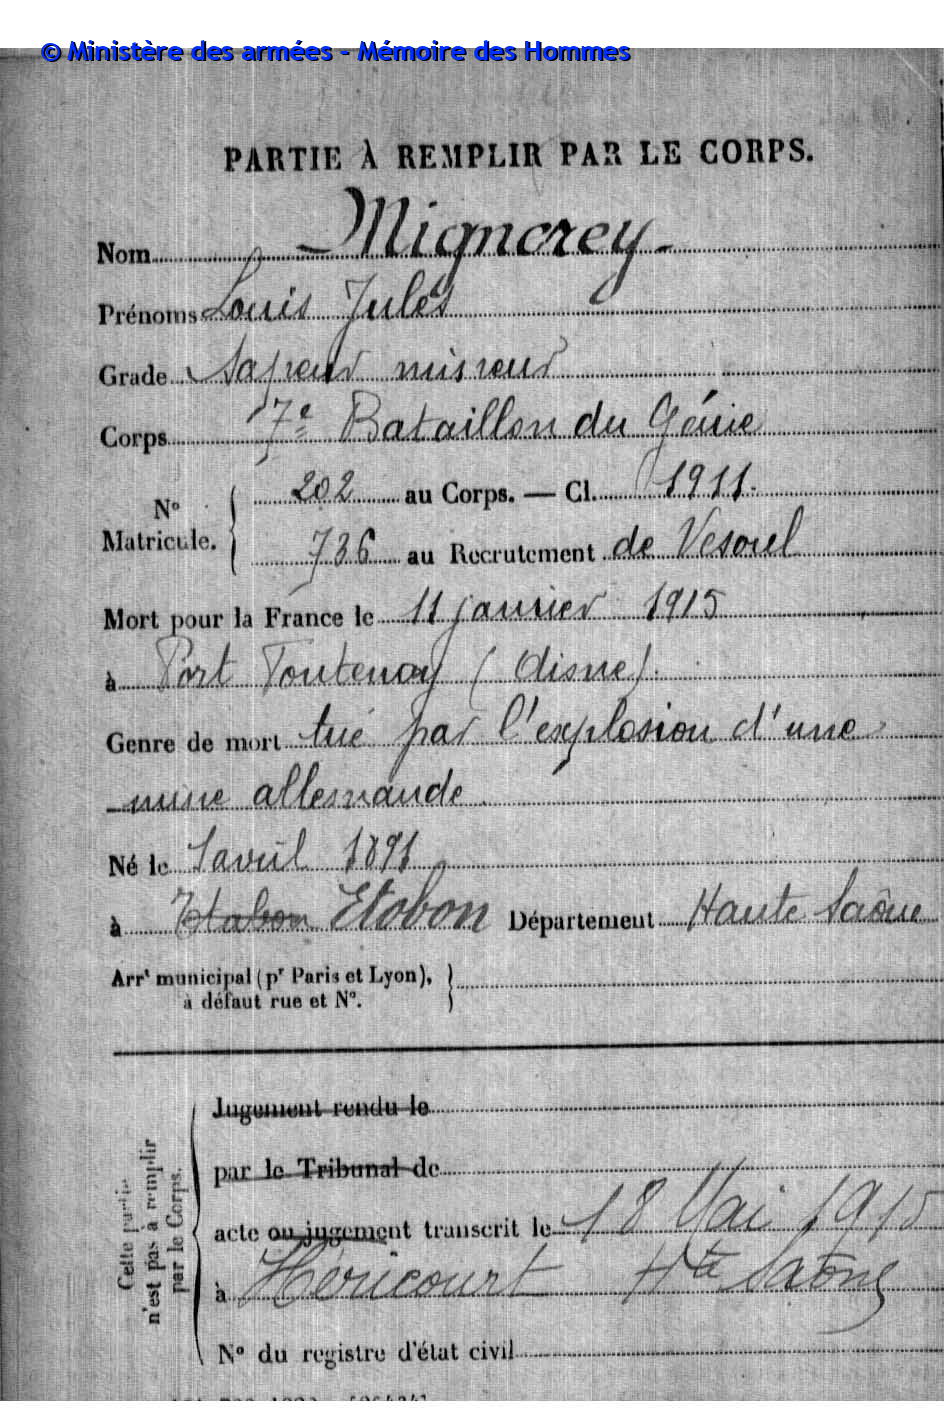 © Ministère des armées - Mémoire des Hommes
PARTIE À REMPLIR PAR LE CORPS.
Nom Mignerey
Prénoms Louis Jules
Grade Sapeur mineur
Corps 7e Bataillon du Génie
202 au Corps. — Cl. 1911.
No Matricule.
736 au Recrutement de Vesoul
Mort pour la France le 11 janvier 1915
à Port Fontenoy (Aisne).
Genre de mort tué par l'explosion d'une
mine allemande.
Né le 1 avril 1891
à Etabon Etobon Département Haute Saône
Arrt municipal (pr Paris et Lyon),
à défaut rue et No.
Cette partie n'est pas à remplir par le Corps.
Jugement rendu le
par le Tribunal de
acte ou jugement transcrit le 18 Mai 1915
à Héricourt Hte Saône
No du registre d'état civil